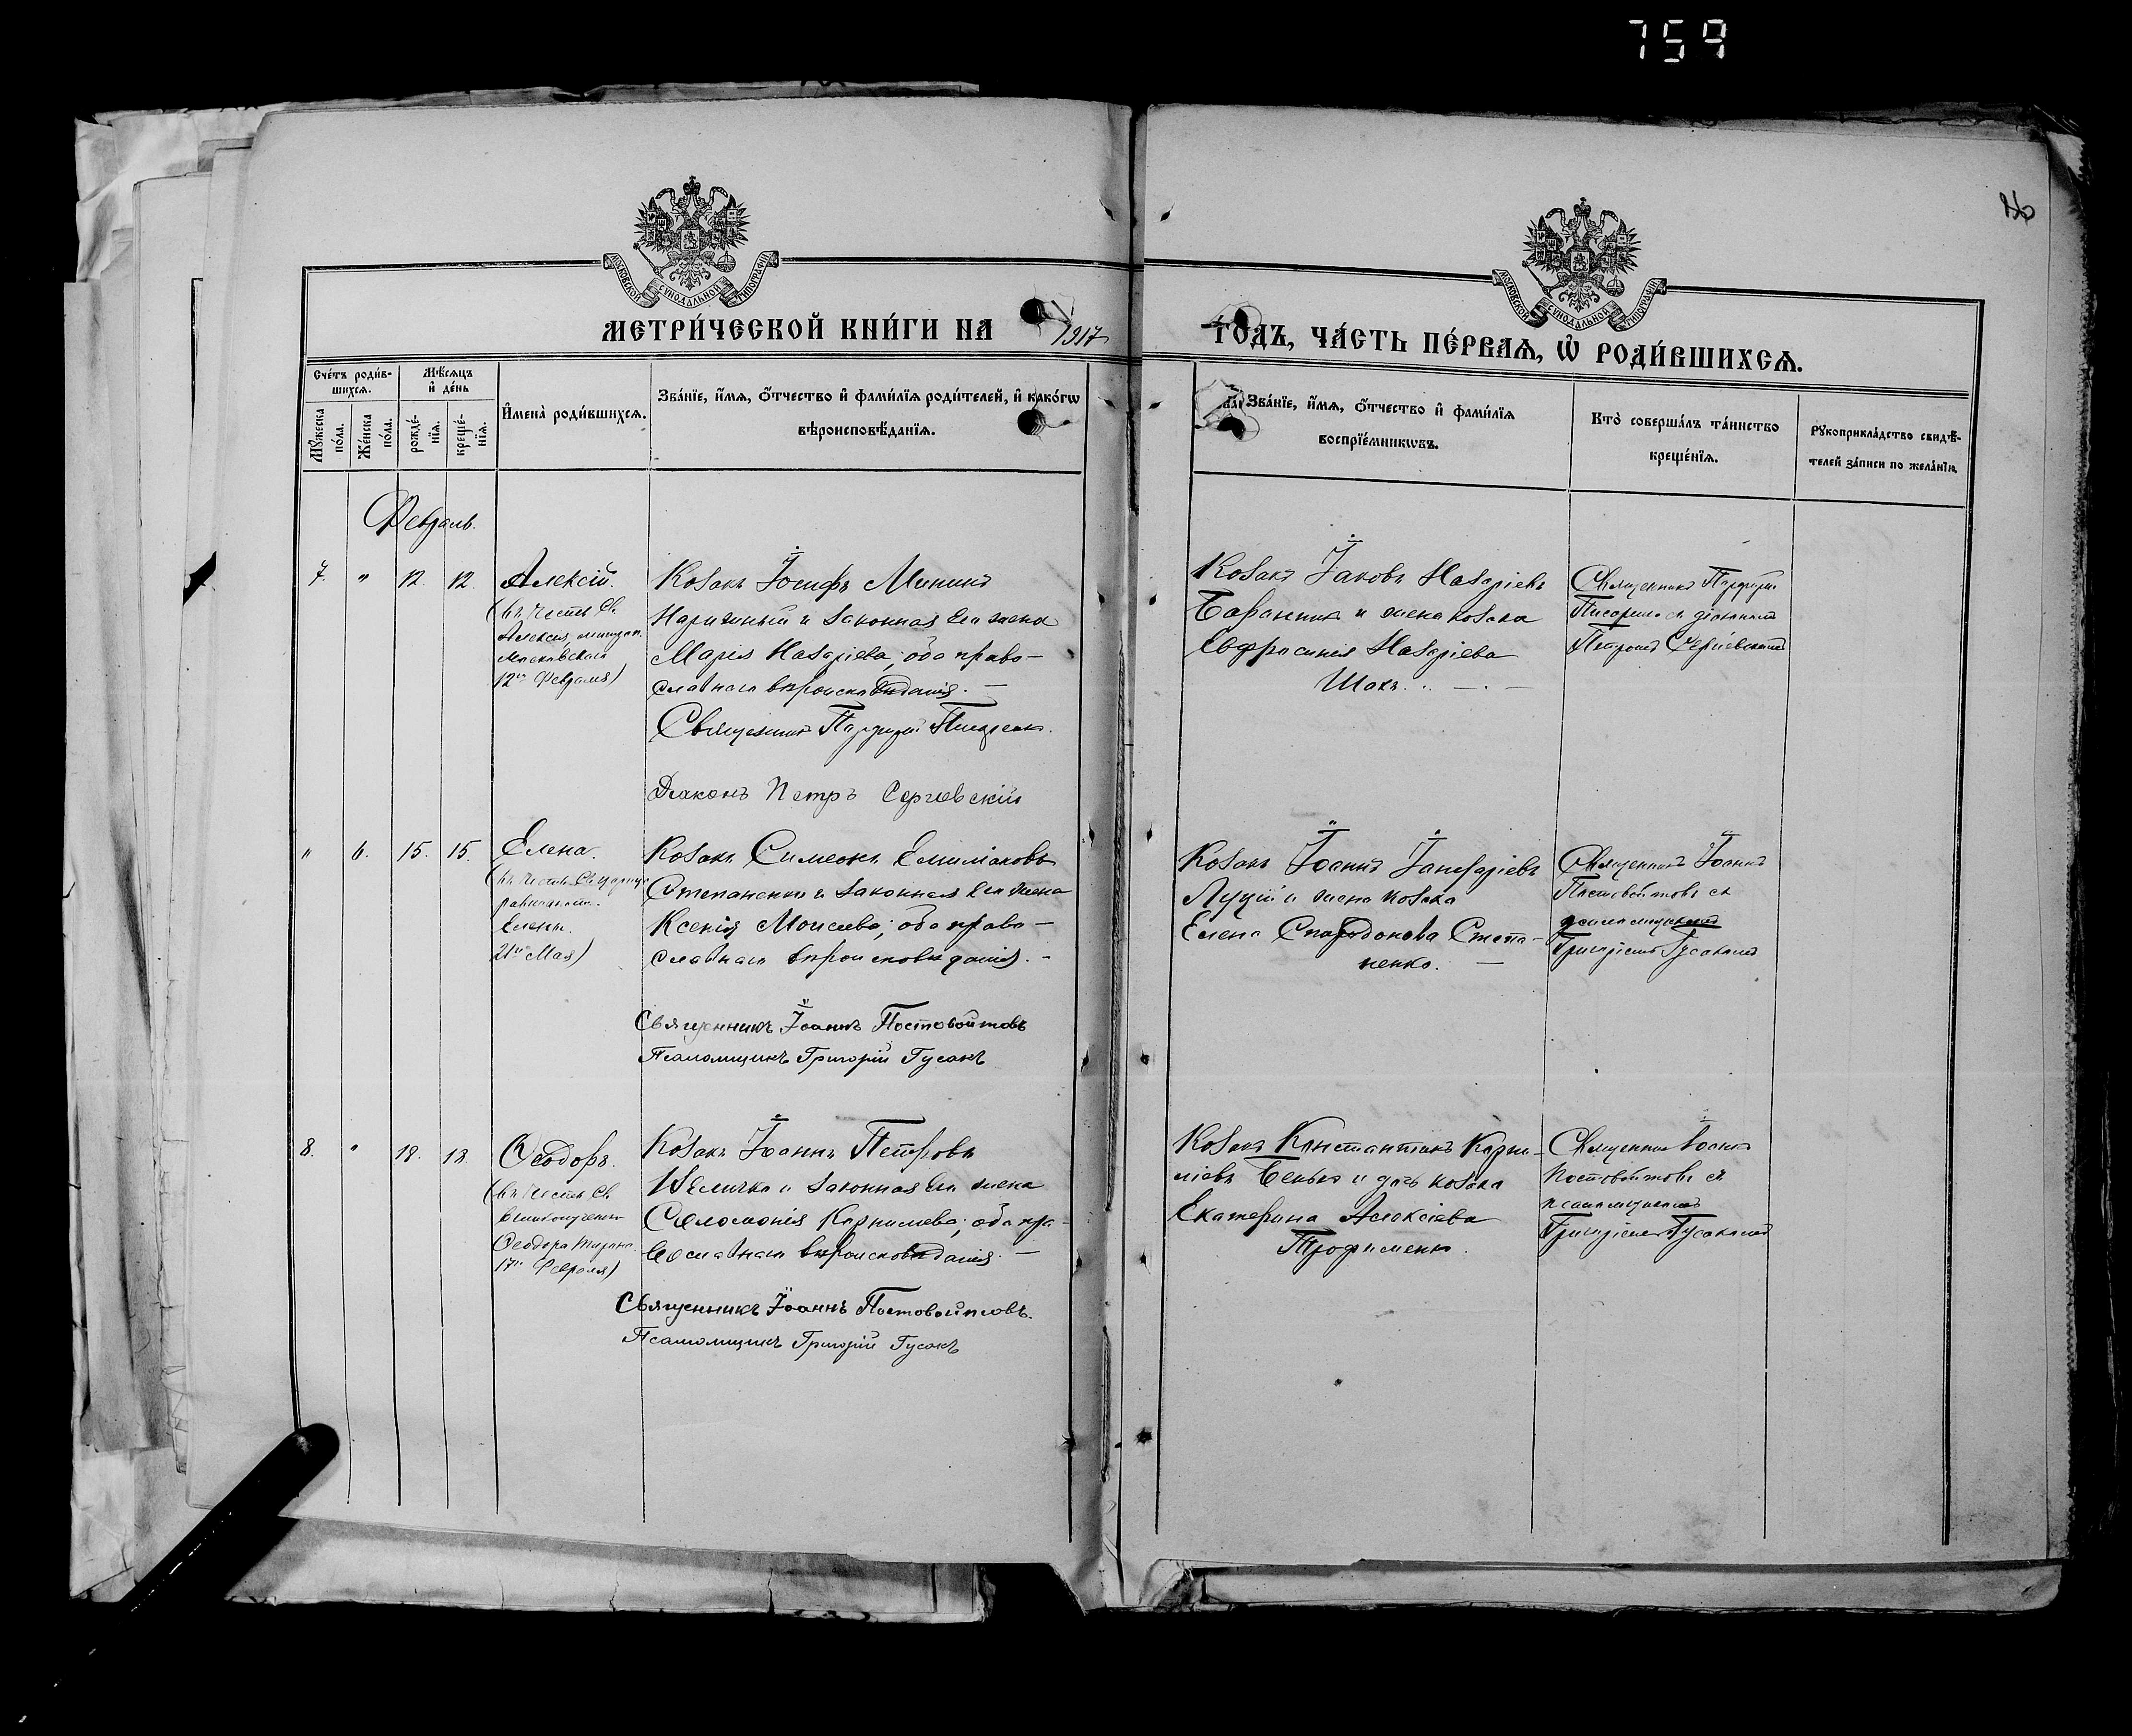 759
МОСКОВСКОЙ СУНОДАЛЬНОЙ ТИПОГРАФІИ
МОСКОВСКОЙ СУНОДАЛЬНОЙ ТИПОГРАФІИ
МЕТРИ́ЧЕСКОЙ КНИ́ГИ НА 1917
ГО́ДЪ, ЧА́СТЬ ПЕ́РВАЯ, Ѡ РОДИ́ВШИХСЯ.
Сче́тъ роди́в-
шихся.
Мꙋ́жеска
по́ла.
Же́нска
по́ла.
Мѣ́сяцъ
и҆ де́нь
рожде́-
нїя.
креще́-
нїя.
И҆мена̀ роди́вшихся.
Зва́нїе, и҆́мя, ѻ҆́тчество и҆ фами́лїя роди́телей, и҆ како́гѡ
вѣроисповѣ́данїя.
Зва́нїе, и҆́мя, ѻ҆́тчество и҆ фами́лїя
воспрїе́мникѡвъ.
Кто̀ соверша́лъ та́инство
креще́нїя.
Рꙋкоприкла́дство свидѣ́-
телей за́писи по жела́нїю.
Февраль.
7. " 12. 12. Алексій.
(въ честь Св.
Алексія, митроп.
Московскаго
12го Февраля)
Козакъ Іосифъ Мининъ
Нарижный и законная его жена
Марія Назаріева; оба право-
славнаго вѣроисповѣданія. —
Священникъ Парфирій Писаренко.
Діаконъ Петръ Сергіевскій
Козакъ Іаковъ Назаріевъ
Баранникъ и жена козака
Евфросинія Назаріева
Шакъ.
Священникъ Парфирій
съ діакономъ
Петромъ Сергіевскимъ
" 6. 15. 15. Елена.
(въ честь Св. Царицы
равноапост.
Елены.
21го Мая)
Козакъ Симеонъ Емиліановъ
Степаненко и законная его жена
Ксенія Моисеева; оба право-
славнаго вѣроисповѣданія. -
Священникъ Іоаннъ Постовойтовъ
Псаломщикъ Григорій Гусакъ
Козакъ Іоаннъ
и жена козака
Елена Спиридонова Степа-
ненко. —
Священникъ Іоаннъ
Постовойтовъ съ
псаломщикомъ
Григоріемъ Гусакомъ
8. " 18. 18. Ѳеодоръ.
(въ честь Св.
великомученика
Ѳеодора Тирона.
17го Февраля)
Козакъ Іоаннъ Петровъ
Величко и законная его жена
Соломонія Корнилиева; оба пра-
вославнаго вѣроисповѣданія. —
Священникъ Іоаннъ Постовойтовъ.
Псаломщикъ Григорій Гусакъ
Козакъ Константинъ Корни-
ліевъ Бенько и дочь козака
Екатерина Алексіева
Трофименко.
Священникъ Іоаннъ
Постовойтовъ съ
псаломщикомъ
Григоріемъ Гусакомъ